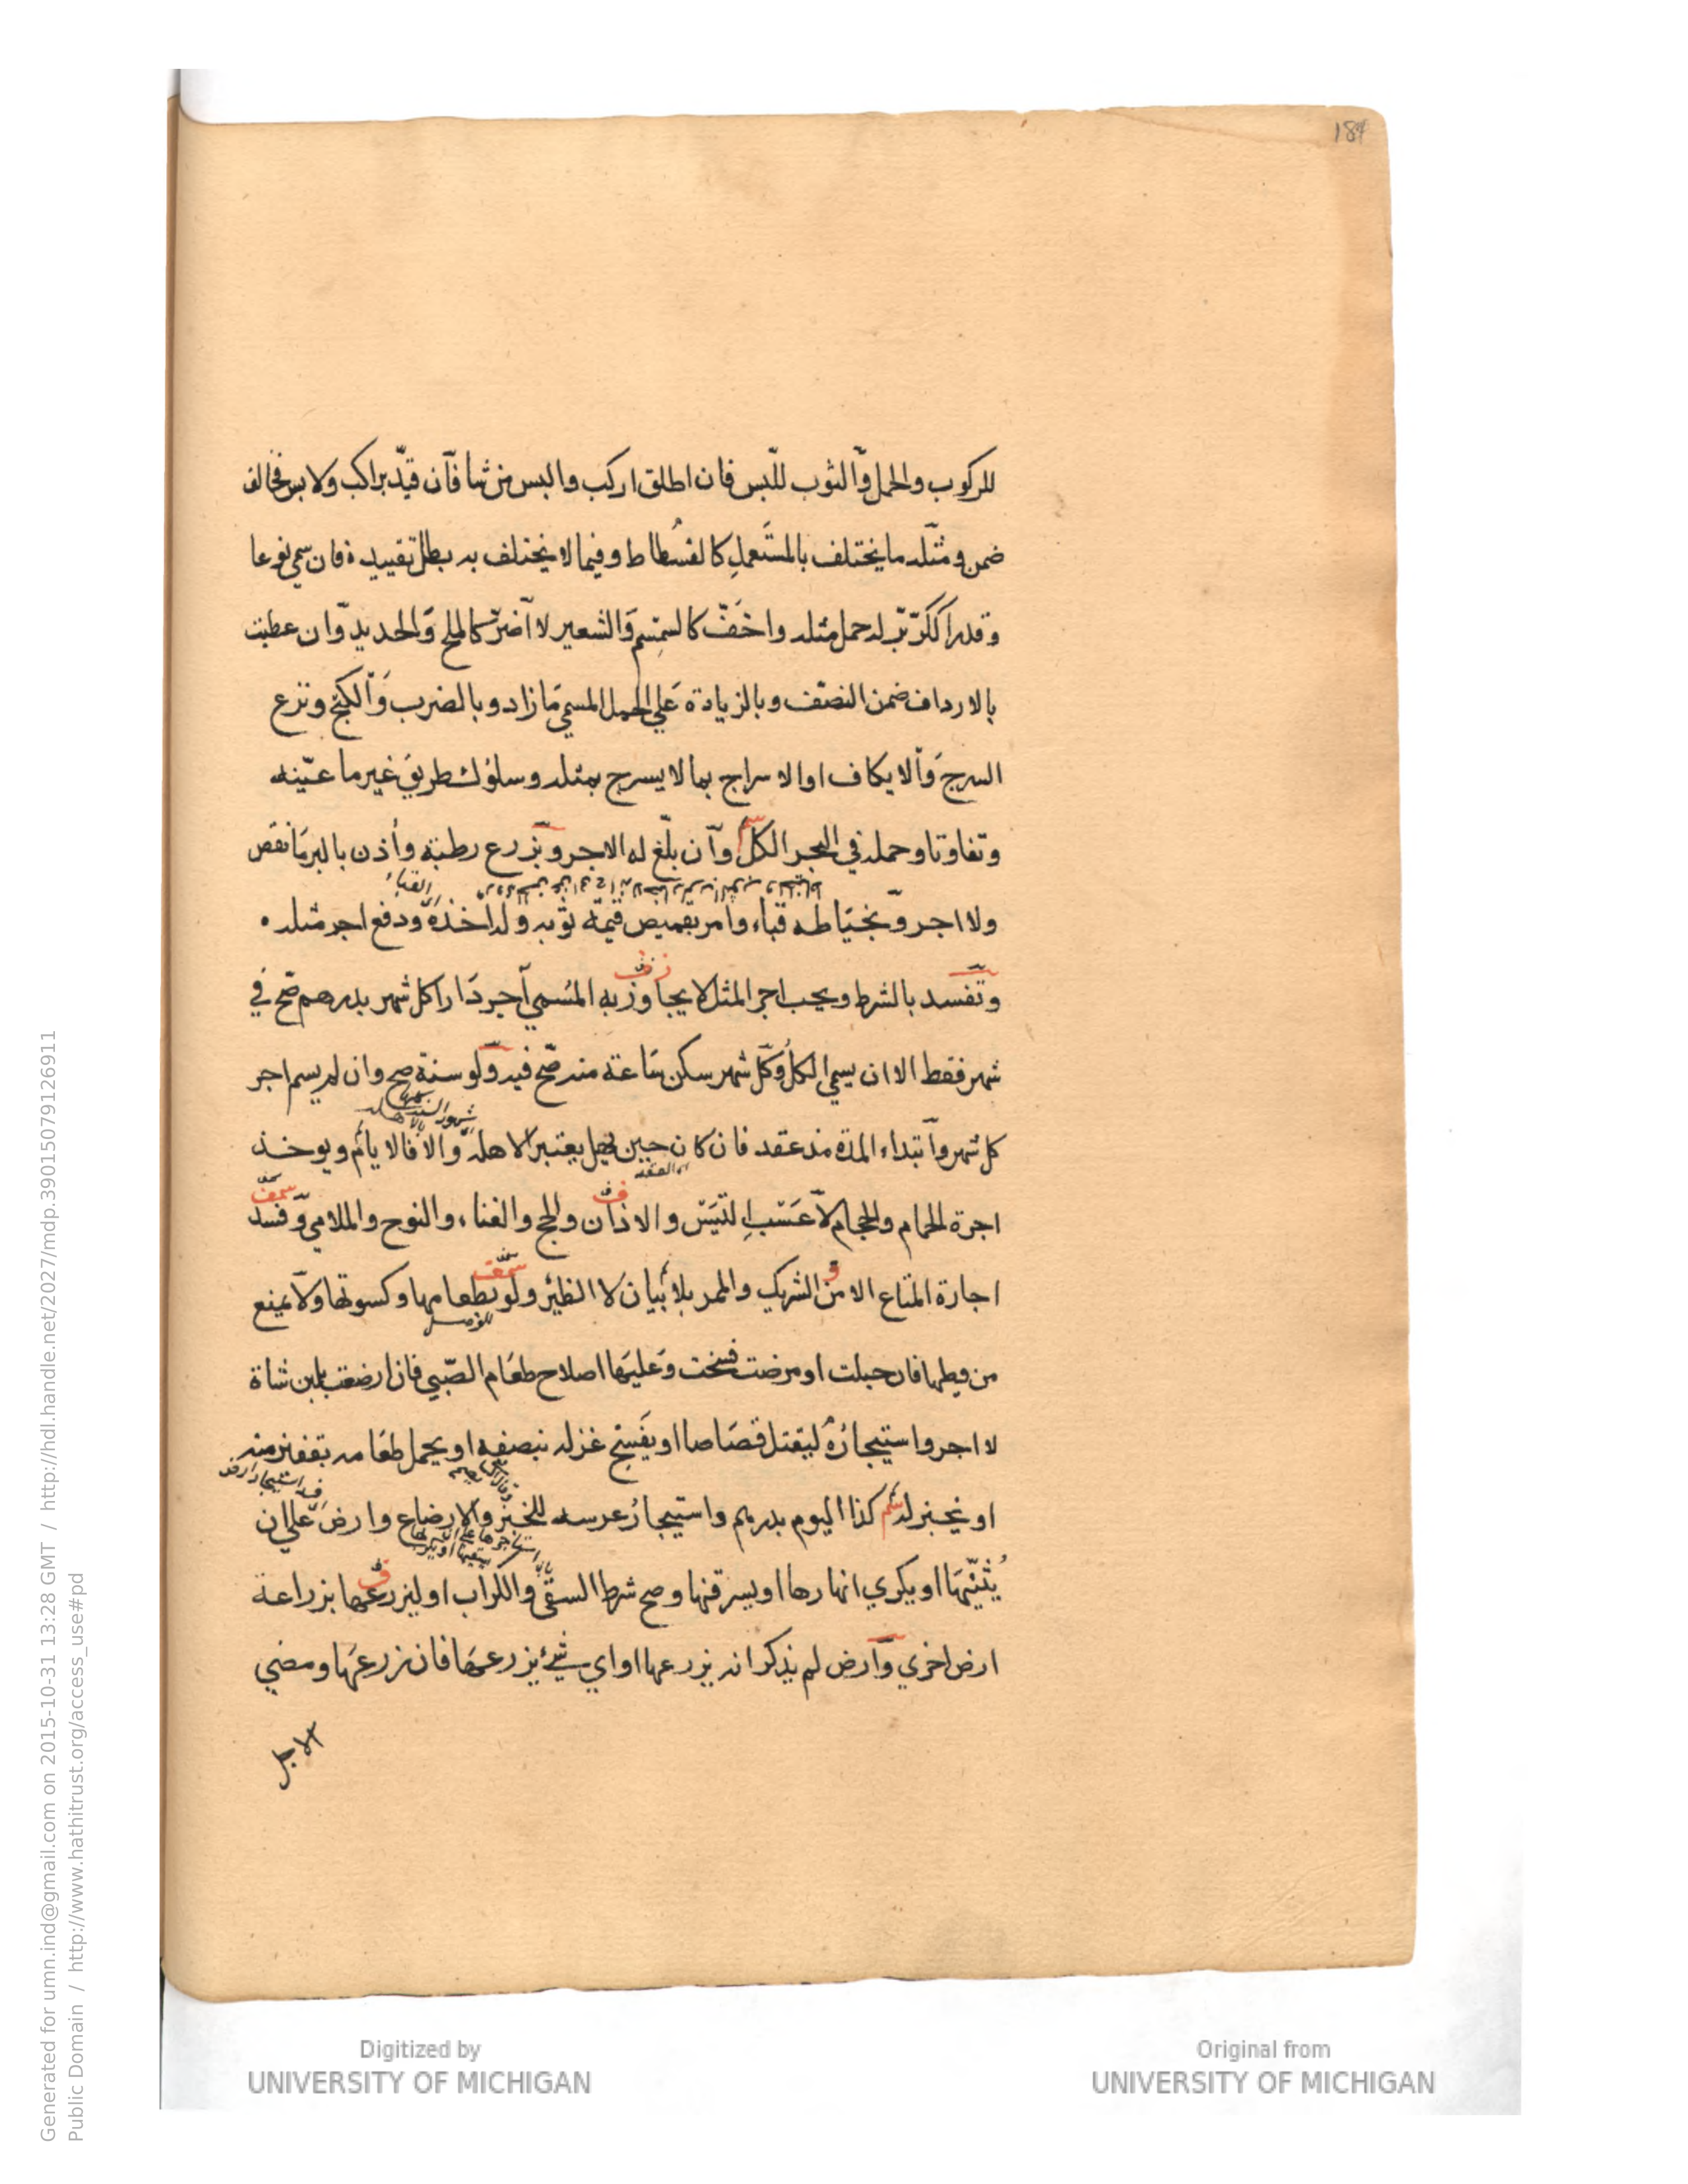 184
للركوب والحمل والثوب للبس فان اطلق اركب والبس من شا فان قيد براكب ولابس فخالف
ضمن ومثله ما يختلف بالمستعمل كالفسطاط وفيما لا يختلف به بطل تقييده فان سمى نوعا
وقدرا ككر بر له حمل مثله واخف كالسمسم والشعير لا اضر كالملح والحديد وان عطبت
بالارداف ضمن النصف وبالزيادة على الحمل المسمي ما زاد وبالضرب والكبح ونزع
السرج والايكاف او الاسراج بما لا يسرج بمثله وسلوك طريق غير ما عينه
وتفاوتا وحمله في البحر الكل وان بلغ له الاجر وبزرع رطبة وأذن بالبر ما نقص
القباء
ولا اجر وبخياطه قباء وامر بقميص قيمة ثوبه وله اخذه ودفع اجر مثله
وتفسد بالشرط ويجب اجر المثل لا يجاوز به المسمي آجر دارا كل شهر بدرهم صح في
شهر فقط الا ان يسمي الكل وكل شهر سكن ساعة منه صح فيه ولو سنة صح وان لم يسم اجر
كل شهر وابتداء المدة منذ عقد فان كان حين يهل يعتبر الاهلة والا فالايام ويوخذ
اي العقد
اجرة الحمام والحجام لا عسب التيس والاذان والحج والغناء والنوح والملاهي وفسد
اجارة المتاع الا من الشريك والممر بلا بيان لا الظئر ولو بطعامها وكسوتها ولا يمنع
من وطيها فان حبلت او مرضت فسخت وعليها اصلاح طعام الصبي فان ارضعت بلبن شاة
لا اجر واستيجاره ليقتل قصاصا او ينسج غزله بنصفه او يحمل طعامه بقفيز منه
او يخبز له كذا اليوم بدرهم واستيجار عرسه للخبز والارضاع وارض علي ان
يثنيها او يكري انهارها او يسرقنها وصح شرط السقي والكراب او ليزرعها بزراعة
ارض اخري وارض لم يذكر انه يزرعها او اي شيء يزرعها فان زرعها ومضي
الاجل
Digitized by
UNIVERSITY OF MICHIGAN
Original from
UNIVERSITY OF MICHIGAN
Generated for umn.ind@gmail.com on 2015-10-31 13:28 GMT / http://hdl.handle.net/2027/mdp.39015079126911
Public Domain / http://www.hathitrust.org/access_use#pd